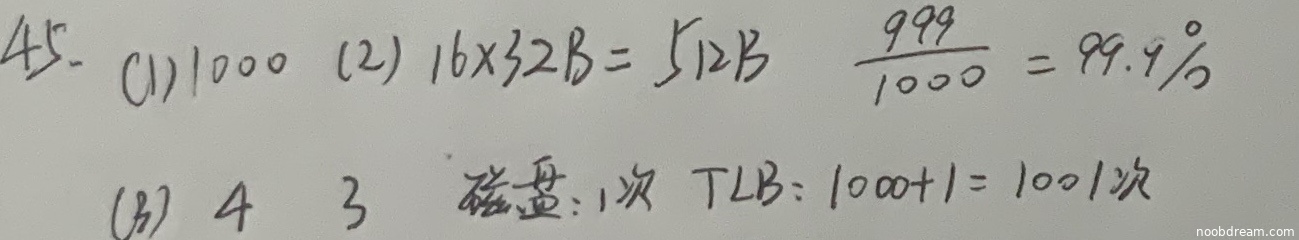 45. (1) 1000 (2) 16×32B = 512B 999/1000 = 99.9%
(3) 4 3 磁盘: 1次 TLB: 1000+1 = 1001次
noobdream.com